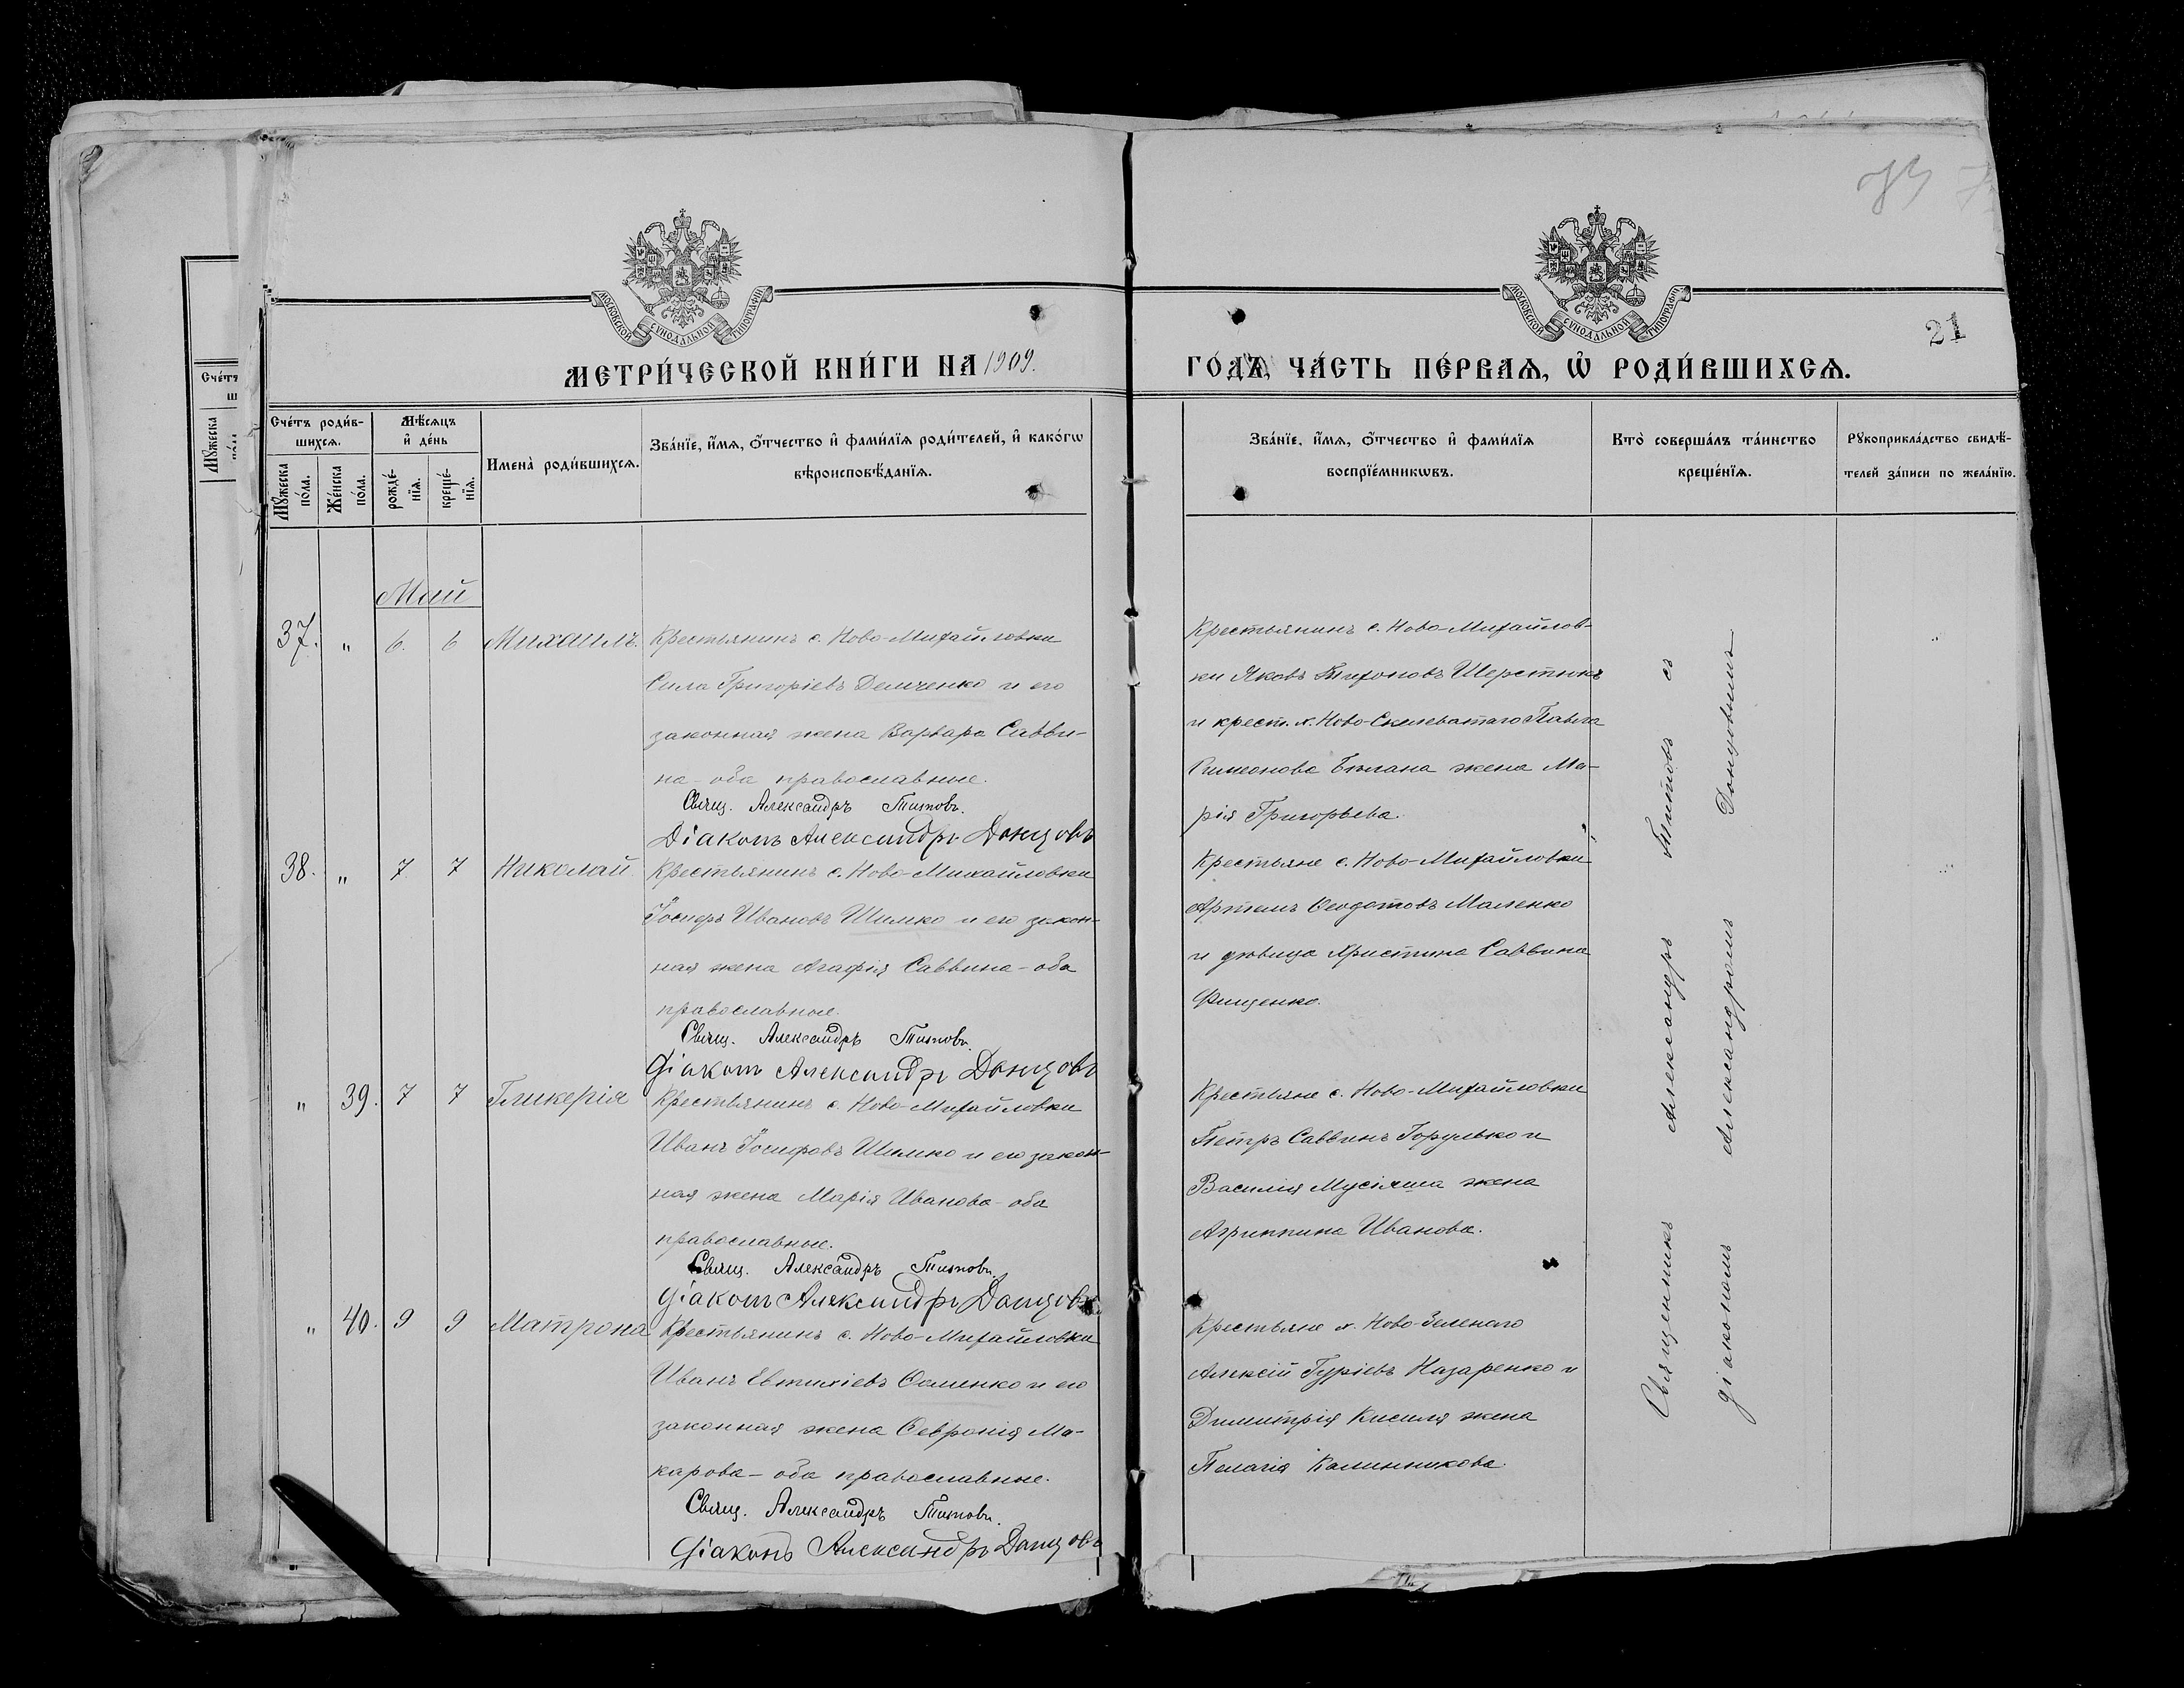 21
МОСКОВСКОЙ СУНОДАЛЬНОЙ ТИПОГРАФІИ
МОСКОВСКОЙ СУНОДАЛЬНОЙ ТИПОГРАФІИ
МЕТРИ́ЧЕСКОЙ КНИ́ГИ НА 1909.
ГО́ДЪ, ЧА́СТЬ ПЕ́РВАѦ, Ѡ҆ РОДИ́ВШИХСѦ.
Сче́тъ роди́в-
шихсѧ.
Мꙋ́жеска
по́ла.
Же́нска
по́ла.
Мѣ́сѧцъ
и҆ де́нь
рожде́-
нїѧ.
креще́-
нїѧ.
Имена̀ роди́вшихсѧ.
Зва́нїе, и҆́мѧ, ѻ҆́тчество и҆ фами́лїѧ роди́телей, и҆ како́гѡ
вѣроисповѣ́данїѧ.
Зва́нїе, и҆́мѧ, ѻ҆́тчество и҆ фами́лїѧ
воспрїе́мникѡвъ.
Кто̀ соверша́лъ та́инство
креще́нїѧ.
Рꙋкоприкла́дство свидѣ́-
телей за́писи по жела́нїю.
Май
37. " 6. 6 Михаилъ.
Крестьянинъ с. Ново-Михайловки
Сила Григоріевъ Демченко и его
законная жена Варвара Савви-
на - оба православные.
Свящ. Александръ Титовъ.
Діаконъ Александръ Донцовъ
Крестьянинъ с. Ново-Михайлов-
ки Яковъ Тихоновъ Шерстюкъ
и крест. х. Ново-Скелеватаго Павла
Симеонова Бѣлана жена Ма-
рія Григорьева.
38. " 7 7 Николай.
Крестьянинъ с. Ново-Михайловки
Іосифъ Ивановъ Шимко и его закон-
ная жена Агафія Саввина - оба
православные.
Свящ. Александръ Титовъ.
Діаконъ Александръ Донцовъ
Крестьяне с. Ново-Михайловки
Артемъ Ѳеодотовъ Маленко
и дѣвица Христина Саввина
Фищенко.
" 39. 7 7 Гликерія
Крестьянинъ с. Ново-Михайловки
Иванъ Іосифовъ Шимко и его закон-
ная жена Марія Иванова - оба
православные.
Свящ. Александръ Титовъ.
Діаконъ Александръ Донцовъ
Крестьяне с. Ново-Михайловки
Петръ Саввинъ Горулько и
Василія Мусіяша жена
Агриппина Иванова.
" 40. 9 9 Матрона
Крестьянинъ с. Ново-Михайловки
Иванъ Евтихіевъ Ѳоменко и его
законная жена Ѳевронія Ма-
карова - оба православные.
Свящ. Александръ Титовъ.
Діаконъ Александръ Донцовъ
Крестьяне х. Ново-Зеленаго
Алексій Гуріевъ Назаренко и
Димитрія Кисиля жена
Пелагія Калинникова.
Священникъ Александръ Титовъ съ
діакономъ Александромъ Донцовымъ
Сче́тъ
Мꙋ́жеска